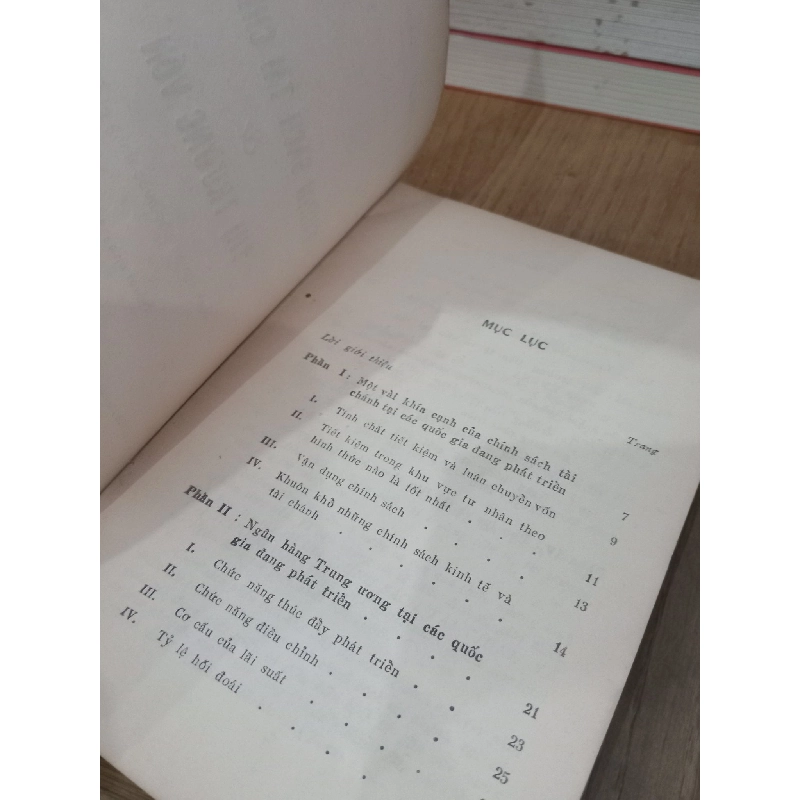 MỤC LỤC
Trang
Lời giới thiệu
Phần I : Một vài khía cạnh của chính sách tài
chánh tại các quốc gia đang phát triển 7
I. Tính chất tiết kiệm và luân chuyển vốn 9
II. Tiết kiệm trong khu vực tư nhân theo
hình thức nào là tốt nhất . . . . 11
III. Vận dụng chính sách . . . . . 13
IV. Khuôn khổ những chính sách kinh tế và
tài chánh . . . . . . 14
Phần II : Ngân hàng Trung ương tại các quốc
gia đang phát triển . . . . 21
I. Chức năng thúc đẩy phát triển . . 23
II. Chức năng điều chỉnh . . . . 25
III. Cơ cấu của lãi suất . . . . .
IV. Tỷ lệ hối đoái . . . . .